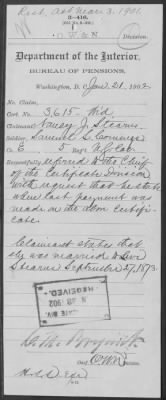 Rest. Act Mar. 3, 1901.
3-416.
O. W. & N. Division.
Department of the Interior,
BUREAU OF PENSIONS,
Washington, D. C., Jan. 21, 1902.
No. Claim,
Cert. No. 3,615. Wid
Claimant, J. Stearns
Soldier, Samuel S.
Co. E 5 Reg't Cav
Respectfully referred to the Chief
of the Certificate Division
with request that he state
when last payment was
made on the above certifi-
cate.
Claimant states that
she was married to Levi
Stearns September 27, 1873.
RECEIVED
JAN 1902
O.W.N.